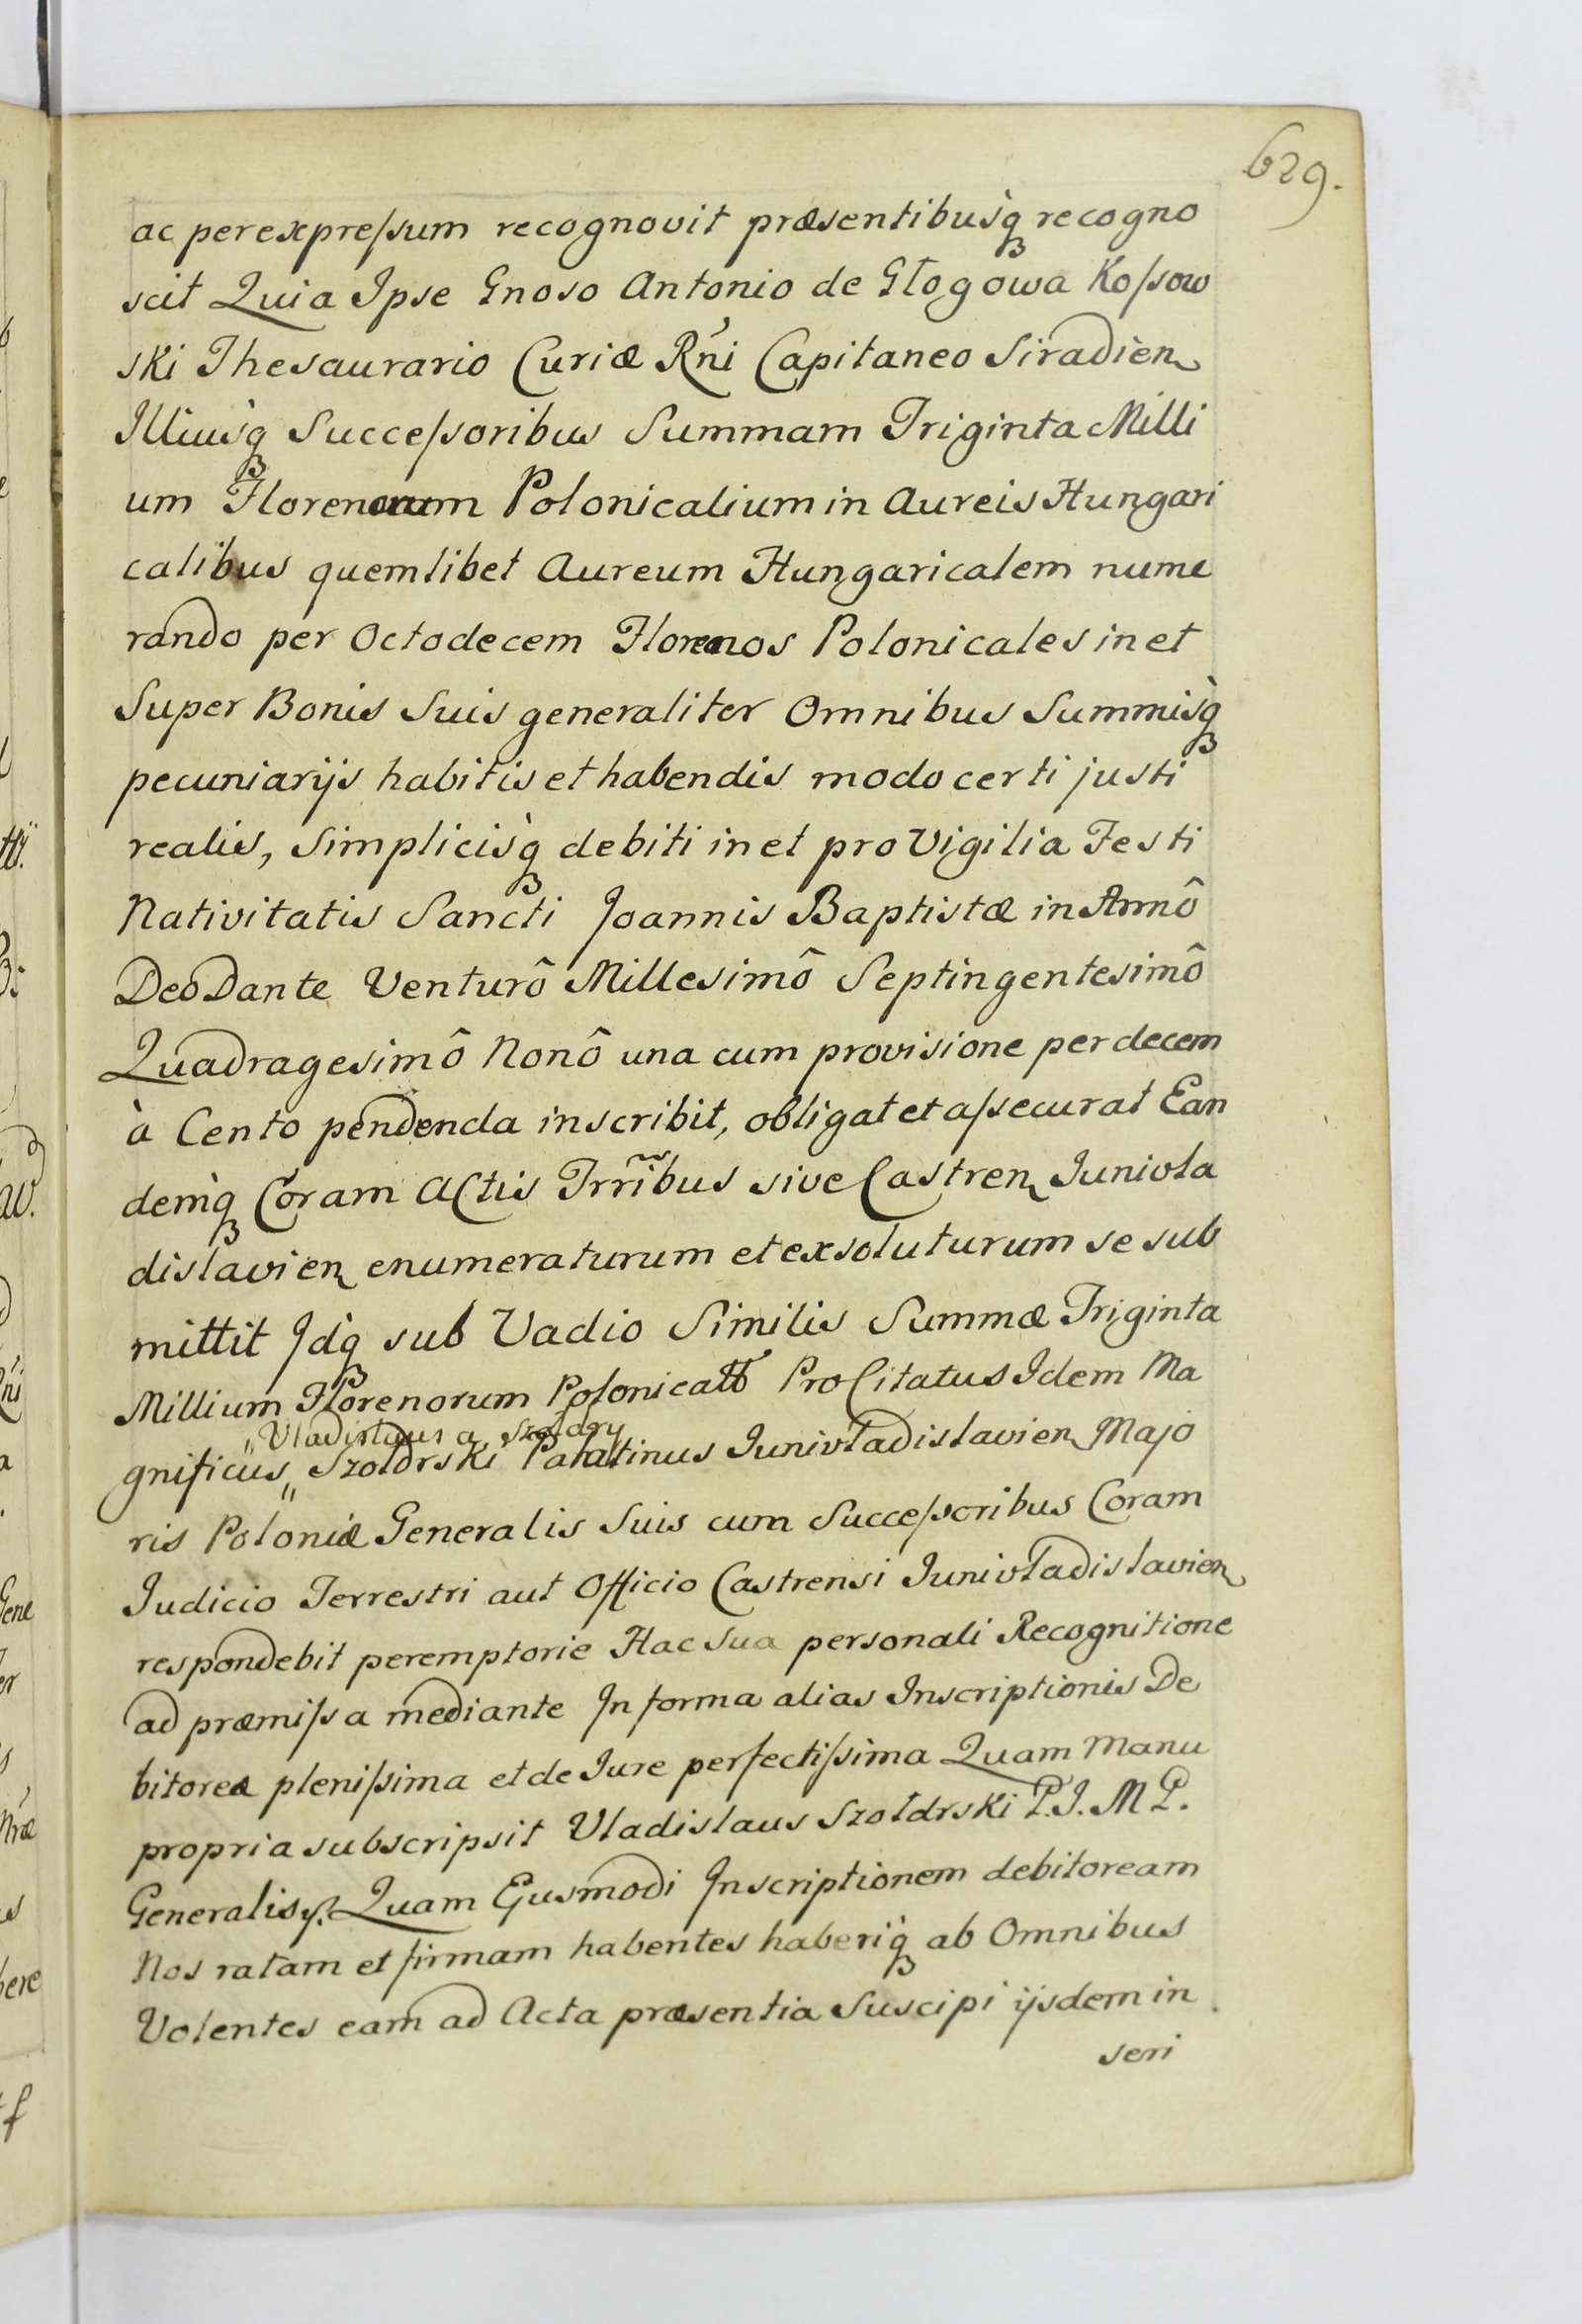 629.
ac per expreſsum recognovit præsentibusq́ꝫ recogno
scit Quia Ipse Gnoso Antonio de Głogowa Koſsow
ski Thesaurario Curiæ Rńi Capitaneo Siradien
Illiusq́ꝫ Succeſsoribus Summam Triginta Milli
um Florenorum Polonicalium in Aureis Hungari
calibus quemlibet Aureum Hungaricalem nume
rando per Octodecem Florenos Polonicales in et
Super Bonis Suis generaliter Omnibus Summisq̀ꝫ
pecuniarijs habitis et habendis modo certi justi
realis, Simplicisq̀ꝫ debiti in et pro Vigilia Festi
Nativitatis Sancti Joannis Baptistæ in Annô
Deo Dante Venturô Millesimô Septingentesimô
Quadragesimô Nonô una cum provisione per decem
à Cento pendenda inscribit, obligat et aſsecurat Ean
demq̀ꝫ Coram Actis Trrĩbus sive Castren Junivla
dislavien enumeraturum et exsoluturum se sub
mittit Idq̀ꝫ sub Vadio Similis Summæ Triginta
Millium Florenorum Polonicall Pro Citatus Idem Ma
"Vladislaus a Szołdry
gnificus " Szołdrski Palatinus Junivładislavien Majo
ris Poloniæ Generalis Suis cum Succeſsoribus Coram
Judicio Terrestri aut Officio Castrensi Junivładislavien
respondebit peremptorie Hac Sua personali Recognitione
ad præmiſsa mediante In forma alias Inscriptionis De
bitoreæ pleniſsima et de Jure perfectiſsima Quam Manu
propria subscripsit Vladislaus Szołdrski P. J. M P.
Generalis. Quam Ejusmodi Inscriptionem debitoream
Nos ratam et firmam habentes haberiq̀ꝫ ab Omnibus
Volentes eam ad Acta præsentia Suscipi ijsdem in
seri